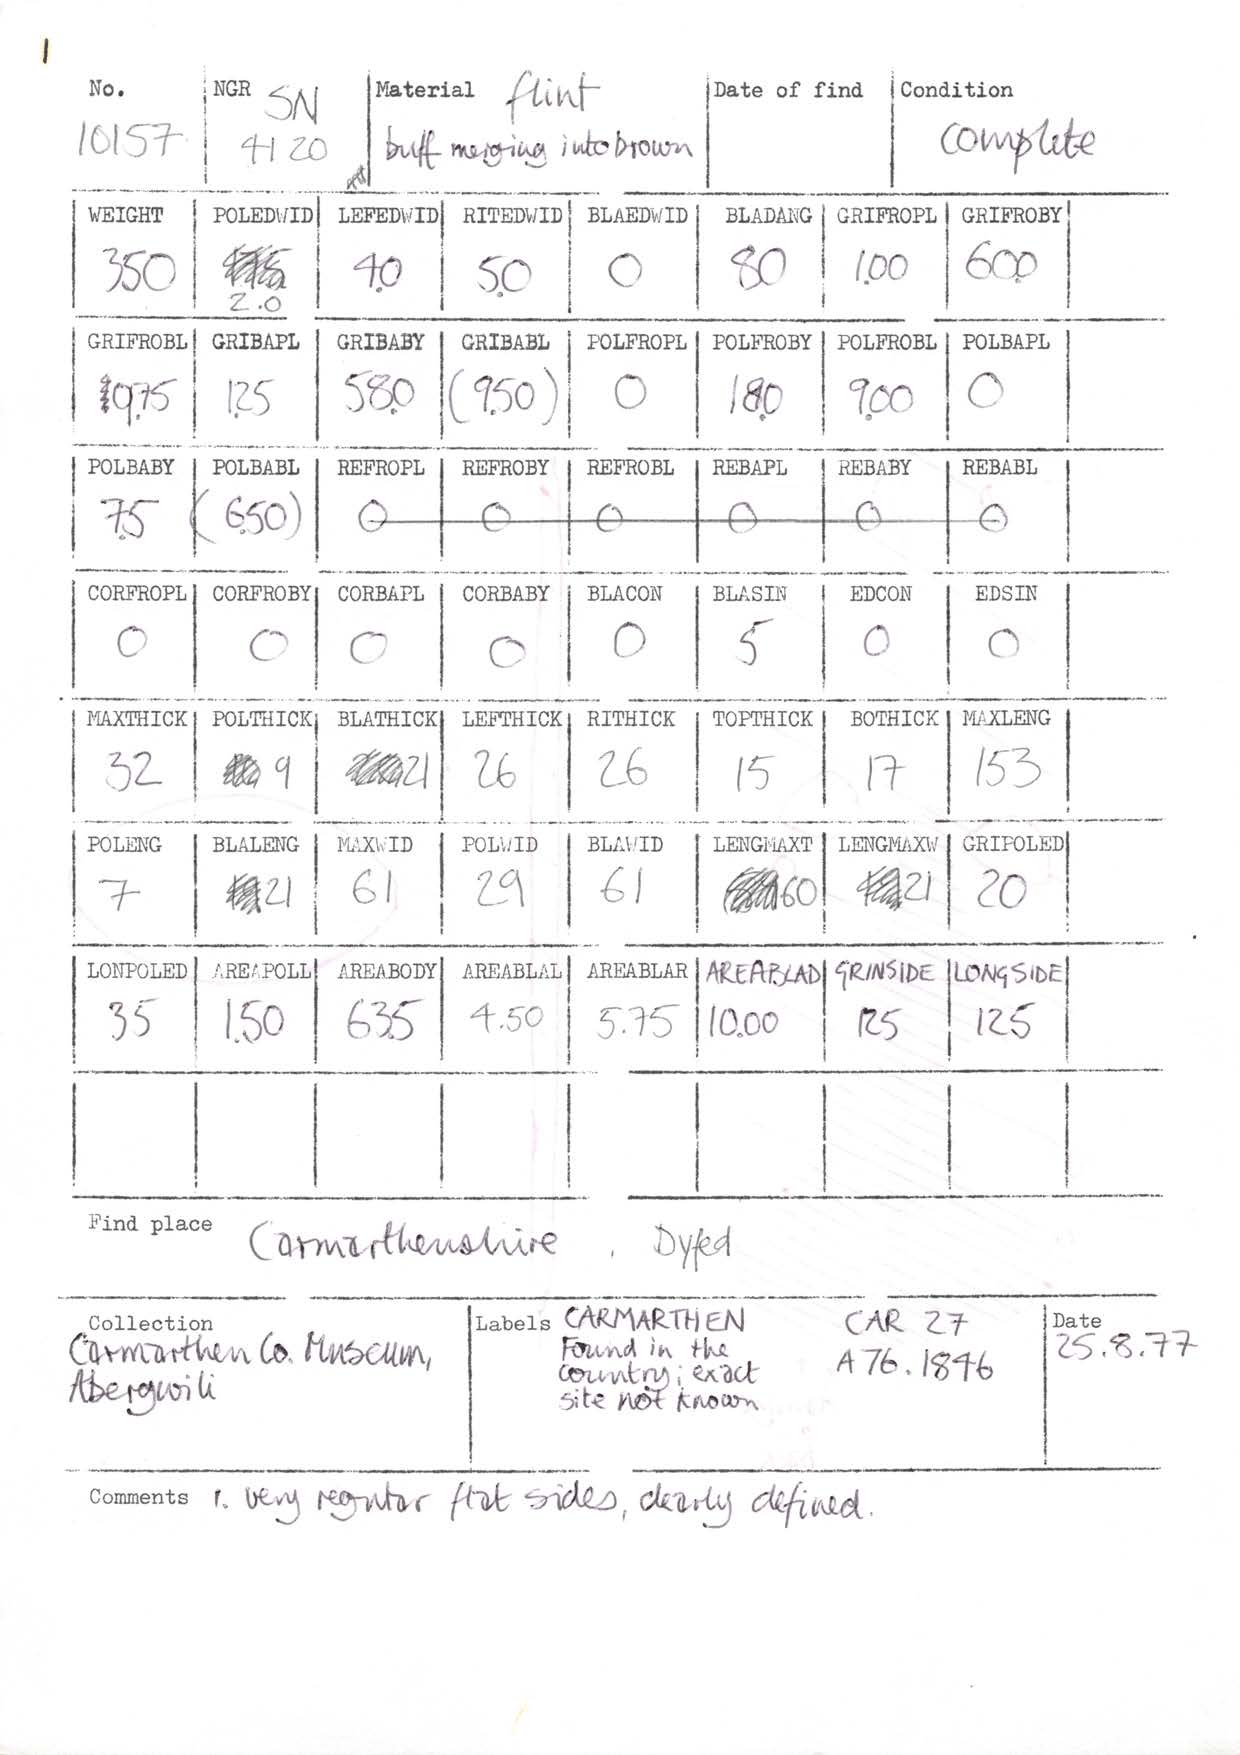 1
No. NGR SN Material flint Date of find Condition
10157 4120 buff merging into brown complete
WEIGHT POLEDWID LEFEDWID RITEDWID BLAEDWID BLADANG GRIFROPL GRIFROBY
350 2.0 4.0 5.0 0 80 1.00 60.0
GRIFROBL GRIBAPL GRIBABY GRIBABL POLFROPL POLFROBY POLFROBL POLBAPL
9.75 1.25 58.0 (9.50) 0 18.0 9.00 0
POLBABY POLBABL REFROPL REFROBY REFROBL REBAPL REBABY REBABL
7.5 (6.50) 0 0 0 0 0 0
CORFROPL CORFROBY CORBAPL CORBABY BLACON BLASIN EDCON EDSIN
0 0 0 0 0 5 0 0
MAXTHICK POLTHICK BLATHICK LEFTHICK RITHICK TOPTHICK BOTHICK MAXLENG
32 9 21 26 26 15 17 153
POLENG BLALENG MAXWID POLWID BLAWID LENGMAXT LENGMAXW GRIPOLED
7 21 61 29 61 60 21 20
LONPOLED AREAPOLL AREABODY AREABLAL AREABLAR AREABLAD GRINSIDE LONGSIDE
35 1.50 63.5 4.50 5.75 10.00 125 125
Find place Carmarthenshire, Dyfed
Collection Labels CARMARTHEN CAR 27 Date
Carmarthen Co. Museum, Found in the A76.1846 25.8.77
Abergwili country; exact
site not known
Comments 1. very regular flat sides, clearly defined.